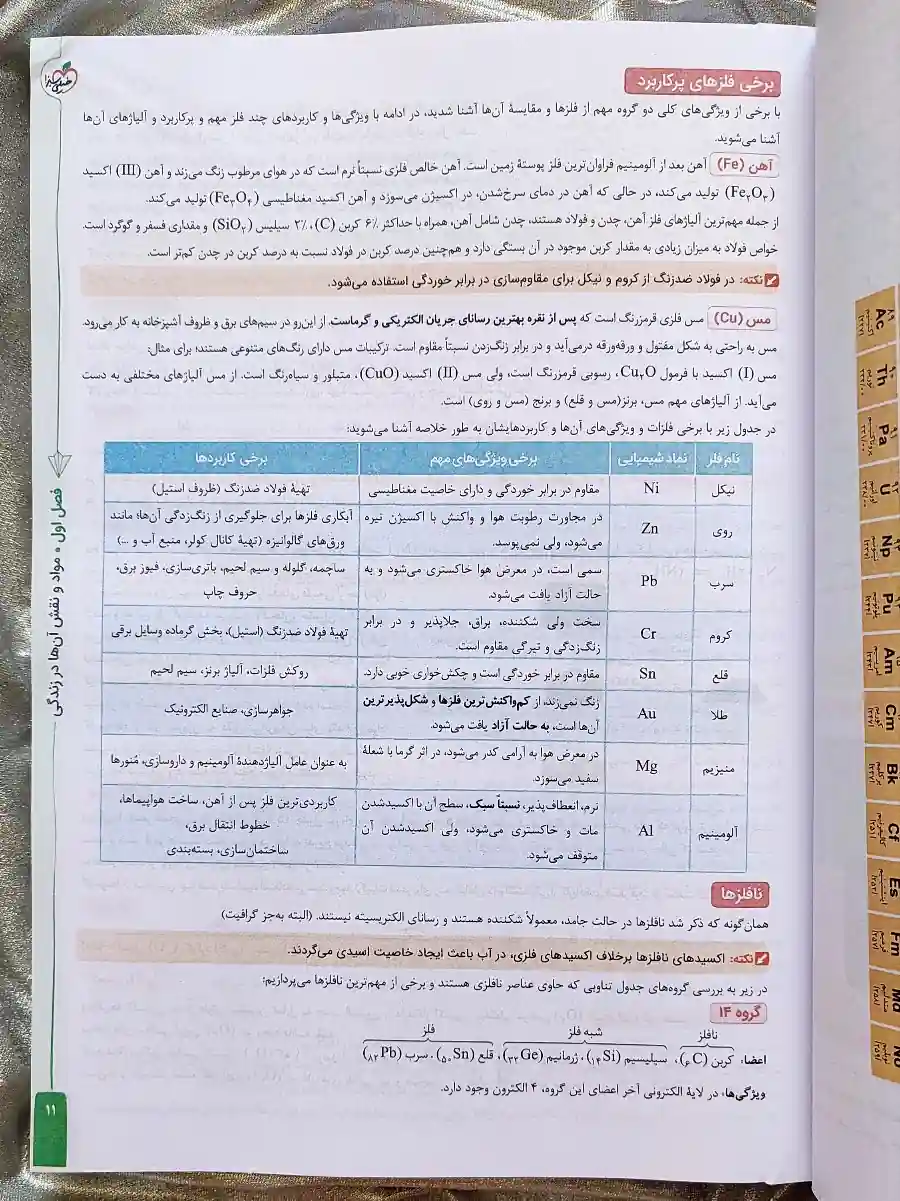 خیلی سبز
برخی فلزهای پرکاربرد
با برخی از ویژگی‌های کلی دو گروه مهم از فلزها و مقایسهٔ آن‌ها آشنا شدید، در ادامه با ویژگی‌ها و کاربردهای چند فلز مهم و پرکاربرد و آلیاژهای آن‌ها
آشنا می‌شوید.
آهن (Fe) آهن بعد از آلومینیم فراوان‌ترین فلز پوستهٔ زمین است. آهن خالص فلزی نسبتاً نرم است که در هوای مرطوب زنگ می‌زند و آهن (III) اکسید
(Fe₂O₃) تولید می‌کند، در حالی که آهن در دمای سرخ‌شدن، در اکسیژن می‌سوزد و آهن اکسید مغناطیسی (Fe₃O₄) تولید می‌کند.
از جمله مهم‌ترین آلیاژهای فلز آهن، چدن و فولاد هستند، چدن شامل آهن، همراه با حداکثر ۶٪ کربن (C)، ۲٪ سیلیس (SiO₂) و مقداری فسفر و گوگرد است.
خواص فولاد به میزان زیادی به مقدار کربن موجود در آن بستگی دارد و هم‌چنین درصد کربن در فولاد نسبت به درصد کربن در چدن کم‌تر است.
نکته: در فولاد ضدزنگ از کروم و نیکل برای مقاوم‌سازی در برابر خوردگی استفاده می‌شود.
مس (Cu) مس فلزی قرمزرنگ است که پس از نقره بهترین رسانای جریان الکتریکی و گرماست. از این‌رو در سیم‌های برق و ظروف آشپزخانه به کار می‌رود.
مس به راحتی به شکل مفتول و ورقه‌ورقه درمی‌آید و در برابر زنگ‌زدن نسبتاً مقاوم است. ترکیبات مس دارای رنگ‌های متنوعی هستند؛ برای مثال:
مس (I) اکسید با فرمول Cu₂O، رسوبی قرمزرنگ است، ولی مس (II) اکسید (CuO)، متبلور و سیاه‌رنگ است. از مس آلیاژهای مختلفی به دست
می‌آید. از آلیاژهای مهم مس، برنز(مس و قلع) و برنج (مس و روی) است.
در جدول زیر با برخی فلزات و ویژگی‌های آن‌ها و کاربردهایشان به طور خلاصه آشنا می‌شوید:
نام فلز نماد شیمیایی برخی ویژگی‌های مهم برخی کاربردها
نیکل Ni مقاوم در برابر خوردگی و دارای خاصیت مغناطیسی تهیهٔ فولاد ضدزنگ (ظروف استیل)
روی Zn در مجاورت رطوبت هوا و واکنش با اکسیژن تیره آبکاری فلزها برای جلوگیری از زنگ‌زدگی آن‌ها؛ مانند
می‌شود، ولی نمی‌پوسد. ورق‌های گالوانیزه (تهیهٔ کانال کولر، منبع آب و ...)
سرب Pb سمی است، در معرض هوا خاکستری می‌شود و به ساچمه، گلوله و سیم لحیم، باتری‌سازی، فیوز برق،
حالت آزاد یافت می‌شود. حروف چاپ
کروم Cr سخت ولی شکننده، براق، جلاپذیر و در برابر تهیهٔ فولاد ضدزنگ (استیل)، بخش گرماده وسایل برقی
زنگ‌زدگی و تیرگی مقاوم است.
قلع Sn مقاوم در برابر خوردگی است و چکش‌خواری خوبی دارد. روکش فلزات، آلیاژ برنز، سیم لحیم
طلا Au زنگ نمی‌زند، از کم‌واکنش‌ترین فلزها و شکل‌پذیرترین جواهرسازی، صنایع الکترونیک
آن‌ها است، به حالت آزاد یافت می‌شود.
منیزیم Mg در معرض هوا به آرامی کدر می‌شود، در اثر گرما با شعلهٔ به عنوان عامل آلیاژدهندهٔ آلومینیم و داروسازی، مُنورها
سفید می‌سوزد.
آلومینیم Al نرم، انعطاف‌پذیر، نسبتاً سبک، سطح آن با اکسیدشدن کاربردی‌ترین فلز پس از آهن، ساخت هواپیماها،
مات و خاکستری می‌شود، ولی اکسیدشدن آن خطوط انتقال برق،
متوقف می‌شود. ساختمان‌سازی، بسته‌بندی
نافلزها
همان‌گونه که ذکر شد نافلزها در حالت جامد، معمولاً شکننده هستند و رسانای الکتریسیته نیستند. (البته به‌جز گرافیت)
نکته: اکسیدهای نافلزها برخلاف اکسیدهای فلزی، در آب باعث ایجاد خاصیت اسیدی می‌گردند.
در زیر به بررسی گروه‌های جدول تناوبی که حاوی عناصر نافلزی هستند و برخی از مهم‌ترین نافلزها می‌پردازیم:
گروه ۱۴
نافلز شبه فلز فلز
اعضا: کربن (₆C)، سیلیسیم (₁₄Si)، ژرمانیم (₃₂Ge)، قلع (₅₀Sn)، سرب (₈₂Pb)
ویژگی‌ها: در لایهٔ الکترونی آخر اعضای این گروه، ۴ الکترون وجود دارد.
فصل اول • مواد و نقش آن‌ها در زندگی
۱۱
۸۹ Ac
۹۰ Th
Pa
U
Np
Pu
Am
Cm
Bk
Cf
Es
Fm
Md
No